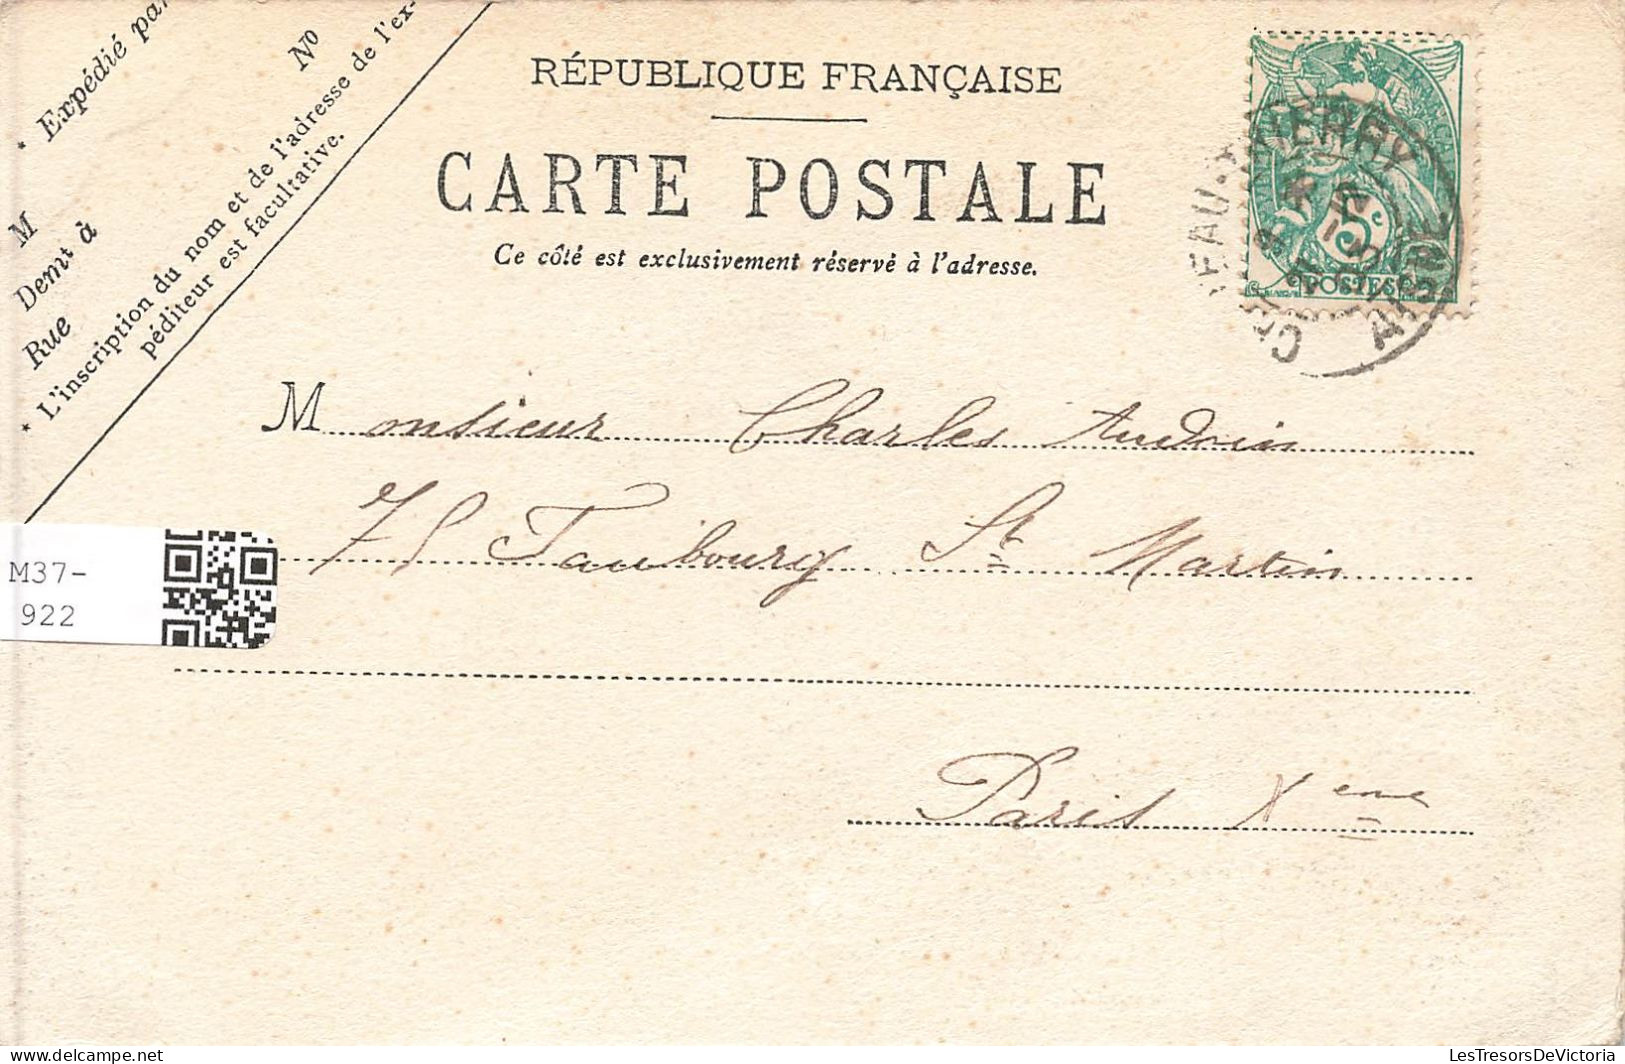 * Expédié par
No
M
Demt à
Rue
* L'inscription du nom et de l'adresse de l'ex-
péditeur est facultative.
RÉPUBLIQUE FRANÇAISE
CARTE POSTALE
Ce côté est exclusivement réservé à l'adresse.
5c
POSTES
AISNE
Monsieur Charles Audoin
75 Faubourg St Martin
Paris Xeme
M37-
922
LesTresorsDeVictoria